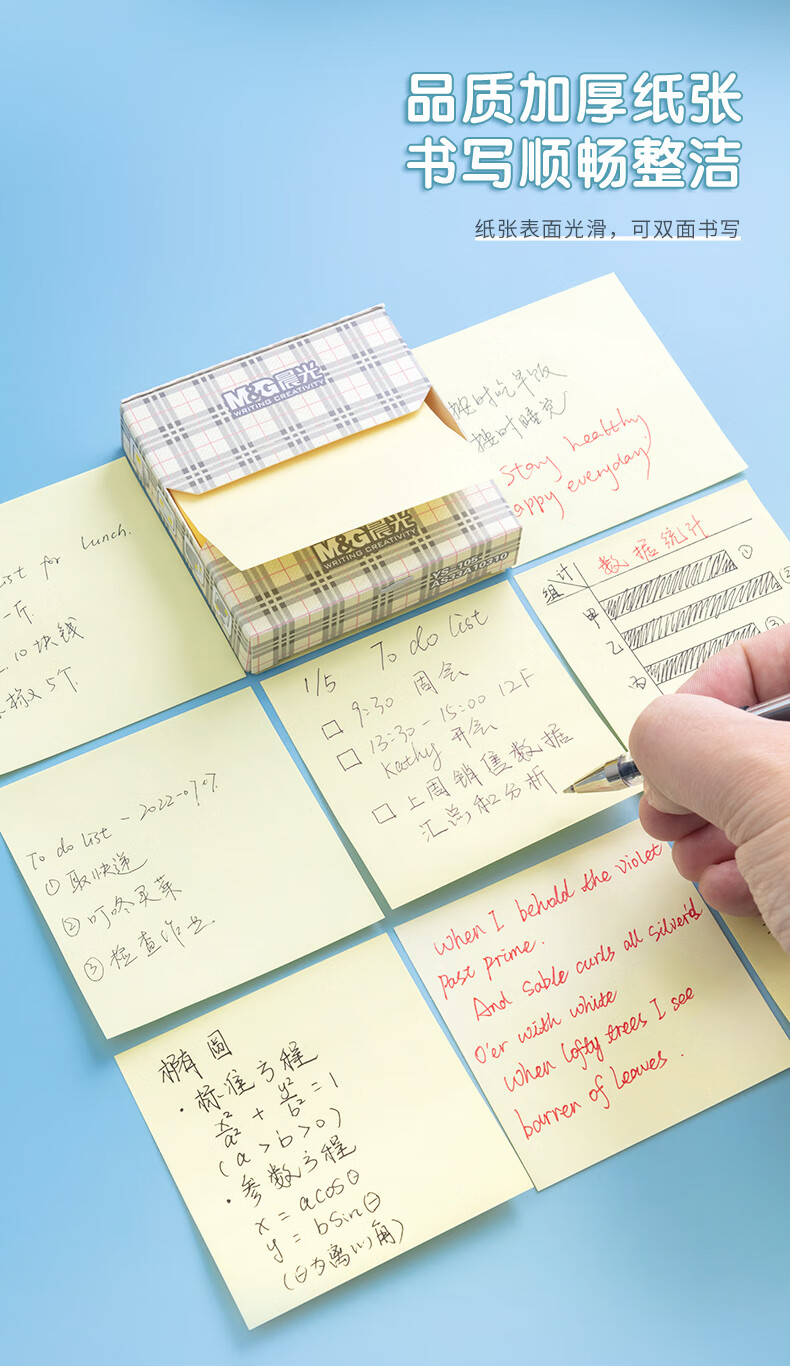 品质加厚纸张
书写顺畅整洁
纸张表面光滑，可双面书写
M&G晨光
WRITING CREATIVITY
M&G晨光
WRITING CREATIVITY
YS-105
AS33A10310
按时吃早饭
按时睡觉
Stay healthy
appy everyday!
数据统计
组 计
甲
乙
丙
①
②
③
ist for Lunch.
一斤.
10块钱
5个.
1/5 To do list
9:30 周会
13:30-15:00 12F
Kathy 开会
上周销售数据
汇总和分析
To do list - 2022-07.07.
① 取快递
② 叮咚买菜
③ 检查作业
When I behold the violet
Past prime.
And sable curls all silver'd
O'er with white
When lofty trees I see
barren of leaves.
椭圆
·标准方程
x²/a² + y²/b² = 1
(a>b>0)
·参数方程
x = acosθ
y = bsinθ
(θ为离心角)